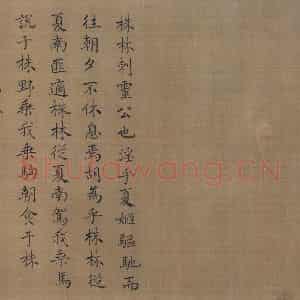 株林刺靈公也淫乎夏姬驅馳而
往朝夕不休息焉胡為乎株林從
夏南匪適株林從夏南駕我乘馬
說于株野乘我乘駒朝食于株
shufawang.cn